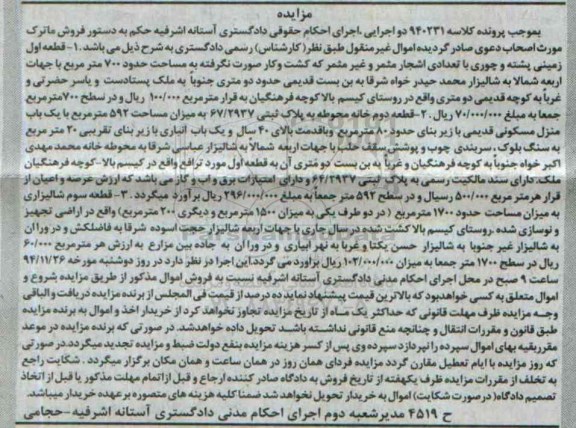 مزایده
بموجب پرونده کلاسه ۹۴۰۲۳۱ دو اجرایی .اجرای احکام حقوقی دادگستری آستانه اشرفیه حکم به دستور فروش ماترک
مورث اصحاب دعوی صادر گردیده اموال غیر منقول طبق نظر (کارشناس) رسمی دادگستری به شرح ذیل می باشد. ۱-قطعه اول
زمینی پشته و چوری با تعدادی اشجار مثمر و غیر مثمر که کشت وکار صورت نگرفته به مساحت حدود ۷۰۰ متر مربع با جهات
اربعه شمالا به شالیزار محمد حیدر خواه شرقا به بن بست قدیمی حدود دو متری جنوبا به ملک پستادست و یاسر حضرتی و
غرباً به کوچه قدیمی دو متری واقع در روستای کیسم بالا کوچه فرهنگیان به قرار مترمربع ۱۰۰/۰۰۰ ریال و در سطح ۷۰۰مترمربع
جمعا به مبلغ ۷۰/۰۰۰/۰۰۰ ریال. ۲-قطعه دوم خانه محوطه به پلاک ثبتی ۶۷/۲۹۳۷ به میزان مساحت ۵۹۲ مترمربع با یک باب
منزل مسکونی قدیمی با زیر بنای حدود ۸۰ مترمربع وباقدمت بالای ۴۰ سال و یک باب انباری با زیر بنای تقریبی ۲۰ متر مربع
به سنگ بلوک ، سربندی چوب و پوششی سقف حلب با جهات اربعه شمالا به شالیزار عباسی شرقا به محوطه خانه محمد مهدی
اکبر خواه جنوباً به کوچه فرهنگیان و غرباً به بن بست دو متری آن به قطعه اول مورد ترافع واقع در کیسم بالا-کوچه فرهنگیان
ملک.دارای سند مالکیت رسمی به پلاک ثبتی ۶۶/۲۹۳۷ و دارای امتیازات برق و اب و گاز می باشد که ارزش عرصه و اعیان از
قرار هرمتر مربع ۵۰۰/۰۰۰ ریال و در سطح ۵۹۲ متر جمعاً به مبلغ ۲۹۶/۰۰۰/۰۰۰ ریال برآورد میگردد .۳-قطعه سوم شالیزاری
به میزان مساحت حدود ۱۷۰۰ مترمربع (در دو طرف یکی به میزان ۱۵۰۰ مترمربع و دیگری ۲۰۰ مترمربع) واقع در اراضی تجهیز
و نوسازی شده .روستای کیسم بالا کشت شده در سال جاری با جهات اربعه شالیزار حجت اسوده شرقا به فاضلکش و در ورا آن
به شالیزار غیر جنوبا به شالیزار حسن یکتا و غربا به نهر ابیاری و در ورا ان به جاده بین مزارع به ارزش هر مترمربع ۶۰/۰۰۰
ریال در سطح ۱۷۰۰ متر جمعا به میزان ۱۰۲/۰۰۰/۰۰۰ ریال براورد می گردد.این اجرا در نظر دارد در روز دوشنبه مورخه ۹۴/۱۱/۲۶
ساعت ۹ صبح در محل اجرای احکام مدنی دادگستری آستانه اشرفیه نسبت به فروش اموال مذکور از طریق مزایده شروع و
اموال متعلق به کسی خواهدبود که بالاترین قیمت پیشنهاد نماید.ده درصد از قیمت فی المجلس از برنده مزایده دریافت و الباقی
وجه مزایده ظرف مهلت قانونی که حداکثر یک ماه از تاریخ مزایده تجاوز نخواهد کرد از خریدار اخذ و اموال به برنده مزایده
طبق قانون و مقررات انتقال و چنانچه منع قانونی نداشته باشد تحویل داده خواهدشد. در صورتی که برنده مزایده در موعد
مقرر بقیه بهای اموال سپرده را نپردازد سپرده وی پس از کسر هزینه مزایده بنفع دولت ضبط و مزایده تجدید میگردد.در صورتی
که روز مزایده با ایام تعطیل مقارن گردد مزایده فردای همان روز در همان ساعت و همان مکان برگزار میگردد . شکایت راجع
به تخلف از مقررات مزایده ظرف یکهفته از تاریخ فروش به دادگاه صادر کننده ارجاع و قبل ازاتمام مهلت مذکور یا قبل از اتخاذ
تصمیم دادگاه( درصورت شکایت) اموال به خریدار تحویل نخواهد شد ضمنا کلیه هزینه های متصوره برعهده خریدار میباشد.
ح ۴۵۱۹ مدیرشعبه دوم اجرای احکام مدنی دادگستری آستانه اشرفیه-حجامی